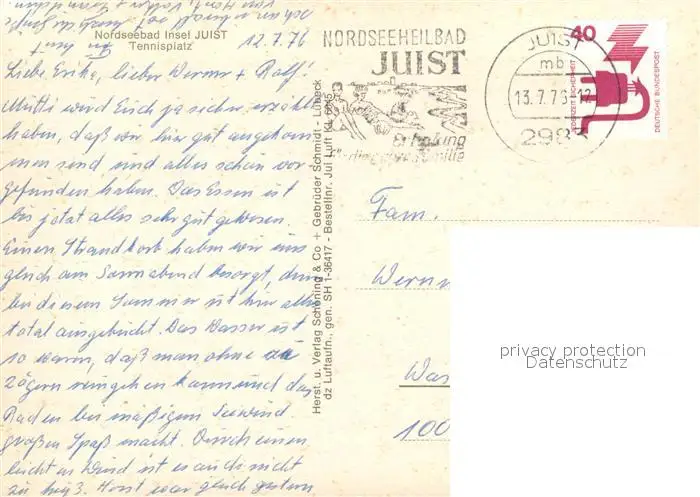 Nordseebad Insel JUIST
Tennisplatz
12.7.76
Liebe Erika, lieber Werner + Ralf!
Mutti wird Euch ja sicher erzählt
haben, daß wir hier gut angekom
men sind und alles schon vor-
gefunden haben. Das Essen ist
bis jetzt alles sehr gut gewesen.
Einen Strandkorb haben wir uns
gleich am Sonnabend besorgt, denn
bei diesem Sommer ist hier alles
total ausgebucht. Das Wasser ist
so warm, daß man ohne zu
zögern reingehen kann und das
Baden bei mäßigem Seewind
großen Spaß macht. Durch einen
leichten Wind ist es auch nicht
zu heiß. Horst war gleich gestern
Herst. u. Verlag Schöning & Co + Gebrüder Schmidt - Lübeck
dz Luftaufn., gen. SH 1-36417 - Bestellnr. Jui Luft
NORDSEEHEILBAD
JUIST
Erholung
für die ganze Familie
JUIST
mb
13.7.76-12
2983
40
JEDERZEIT SICHERHEIT
DEUTSCHE BUNDESPOST
Fam.
Wern
Was
100
privacy protection
Datenschutz